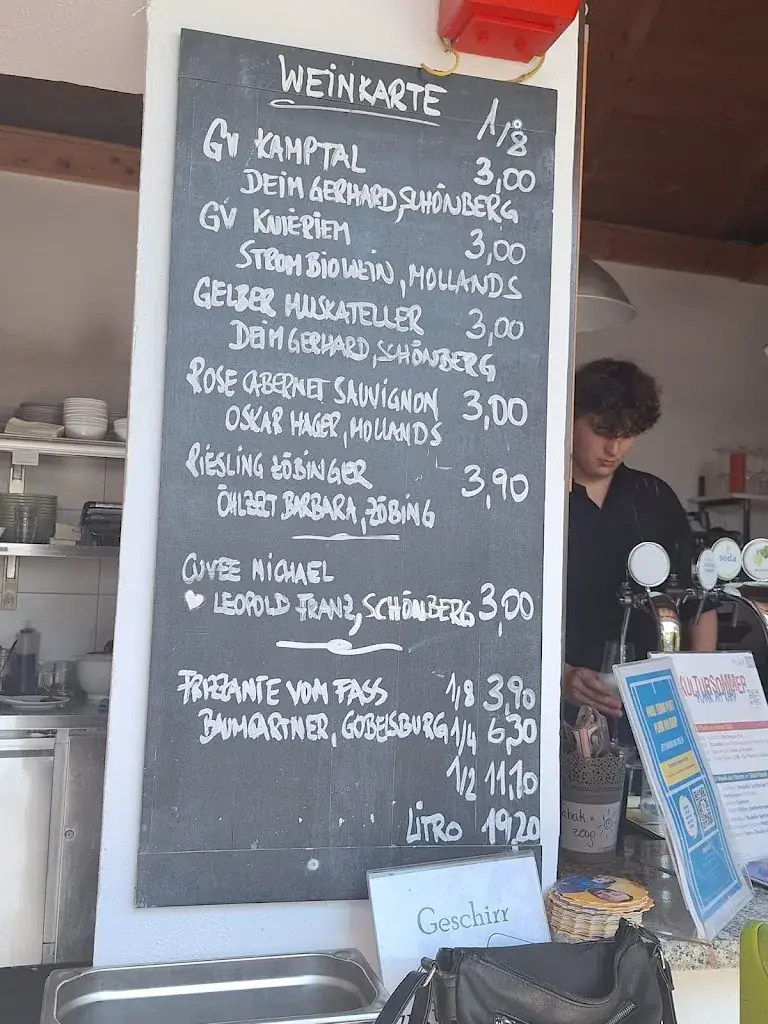 WEINKARTE 1/8
GV KAMPTAL 3,00
DEIM GERHARD, SCHÖNBERG
GV KNIERIEM 3,00
STROM BIOWEIN, MOLLANDS
GELBER MUSKATELLER 3,00
DEIM GERHARD, SCHÖNBERG
ROSE CABERNET SAUVIGNON 3,00
OSKAR HAGER, MOLLANDS
RIESLING ZÖBINGER 3,90
ÖHLZELT BARBARA, ZÖBING
CUVEE MICHAEL
LEOPOLD FRANZ, SCHÖNBERG 3,00
FRIZZANTE VOM FASS 1/8 3,90
BAUMGARTNER, GOBELSBURG 1/4 6,30
1/2 11,10
LITRO 19,20
Geschirr
soda
KULTURSOMMER